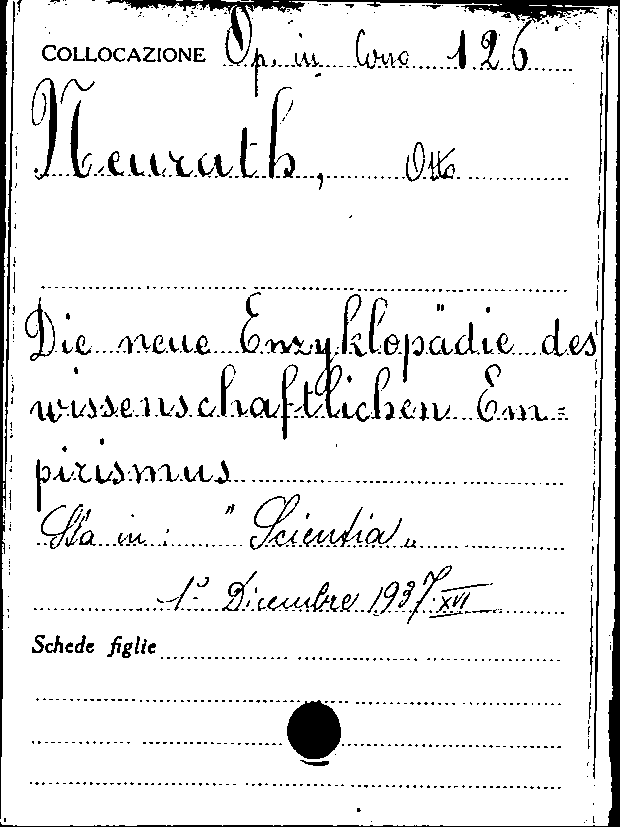 COLLOCAZIONE Op. in Cons 126
Neurath, Otto
Die neue Enzyklopädie des
wissenschaftlichen Em=
pirismus
Sta in: "Scientia"
1° Dicembre 1937.XVI
Schede figlie